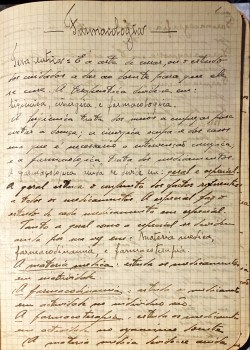 Farmacologia
Terapeutica - É a arte de curar, ou o estudo
dos cuidados a dar ao doente para que ele
se cure. A terapeutica divide-se em:
higienica, cirurgica e farmacologica.
A higienica trata dos meios a empregar para
evitar a doença; a cirurgica ocupa-se dos casos
em que é necessario a intervenção cirurgica,
e a farmacologica trata dos medicamentos.
A farmacologia divide-se em: geral e especial.
A geral estuda o conjunto dos factos referentes
a todos os medicamentos. A especial faz o
estudo de cada medicamento em especial.
Tanto a geral como a especial se dividem
ainda por sua vez em: Materia medica,
farmacodinamia, e farmacoterapia.
A materia medica: estuda os medicamentos
em natureza.
A farmacodinamia, estuda os medicamentos
em actividade no individuo são.
A farmacoterapia: estuda os medicamentos
em actividade no organismo doente.
A materia medica divide-se ainda